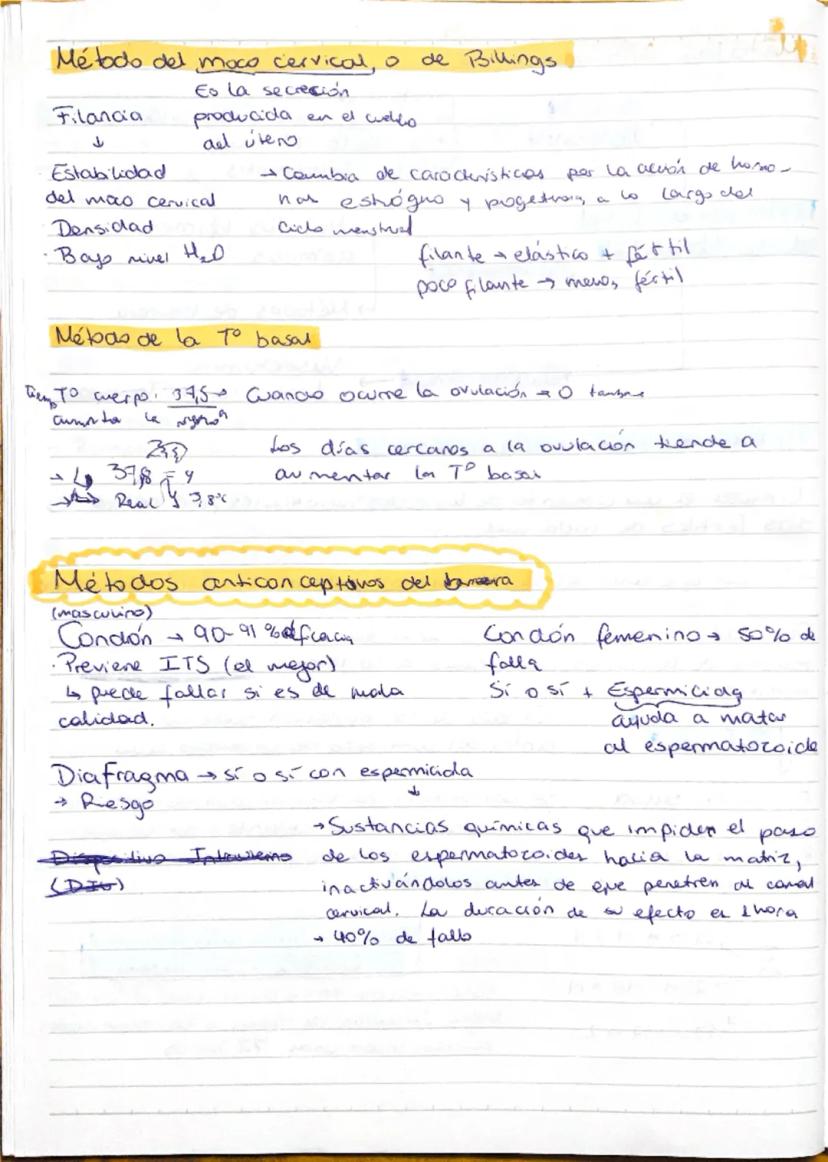 Método del moco cervical, o de Billings
Es la secreción
producida en el cuello
del útero
Filancia
↓
Estabilidad
del moco cervical
Densidad
· Bajo nivel H₂O
→ Cambia de características por la acción de hormo-
nas estrógno y progestrona, a lo largo del
ciclo menstrual
filante → elástico + fértil
poco filante → menos fértil
Método de la Tº basal
Tº cuerpo. 37,5 → Cuando ocurre la ovulación →
aumenta la
Los días cercanos a la ovulación tiende a
aumentar la Tº basal
→ 37,8
→ Real
Métodos anticonceptivos del barrera
(masculino)
Condón → 90-91 % eficacia
· Previene ITS (el mejor)
↳ puede fallar si es de mala
calidad.
Condón femenino → 50% de
falla
Sí o sí + Espermicida
ayuda a matar
al espermatozoide
Diafragma → sí o sí con espermicida
→ Riesgo
↓
→ Sustancias químicas que impiden el paso
de los espermatozoides hacia la matriz,
inactivándolos antes de que penetren al canal
cervical. La duración de su efecto es 1 hora
→ 40% de fallo
Dispositivo Intrauterino
(DIU)